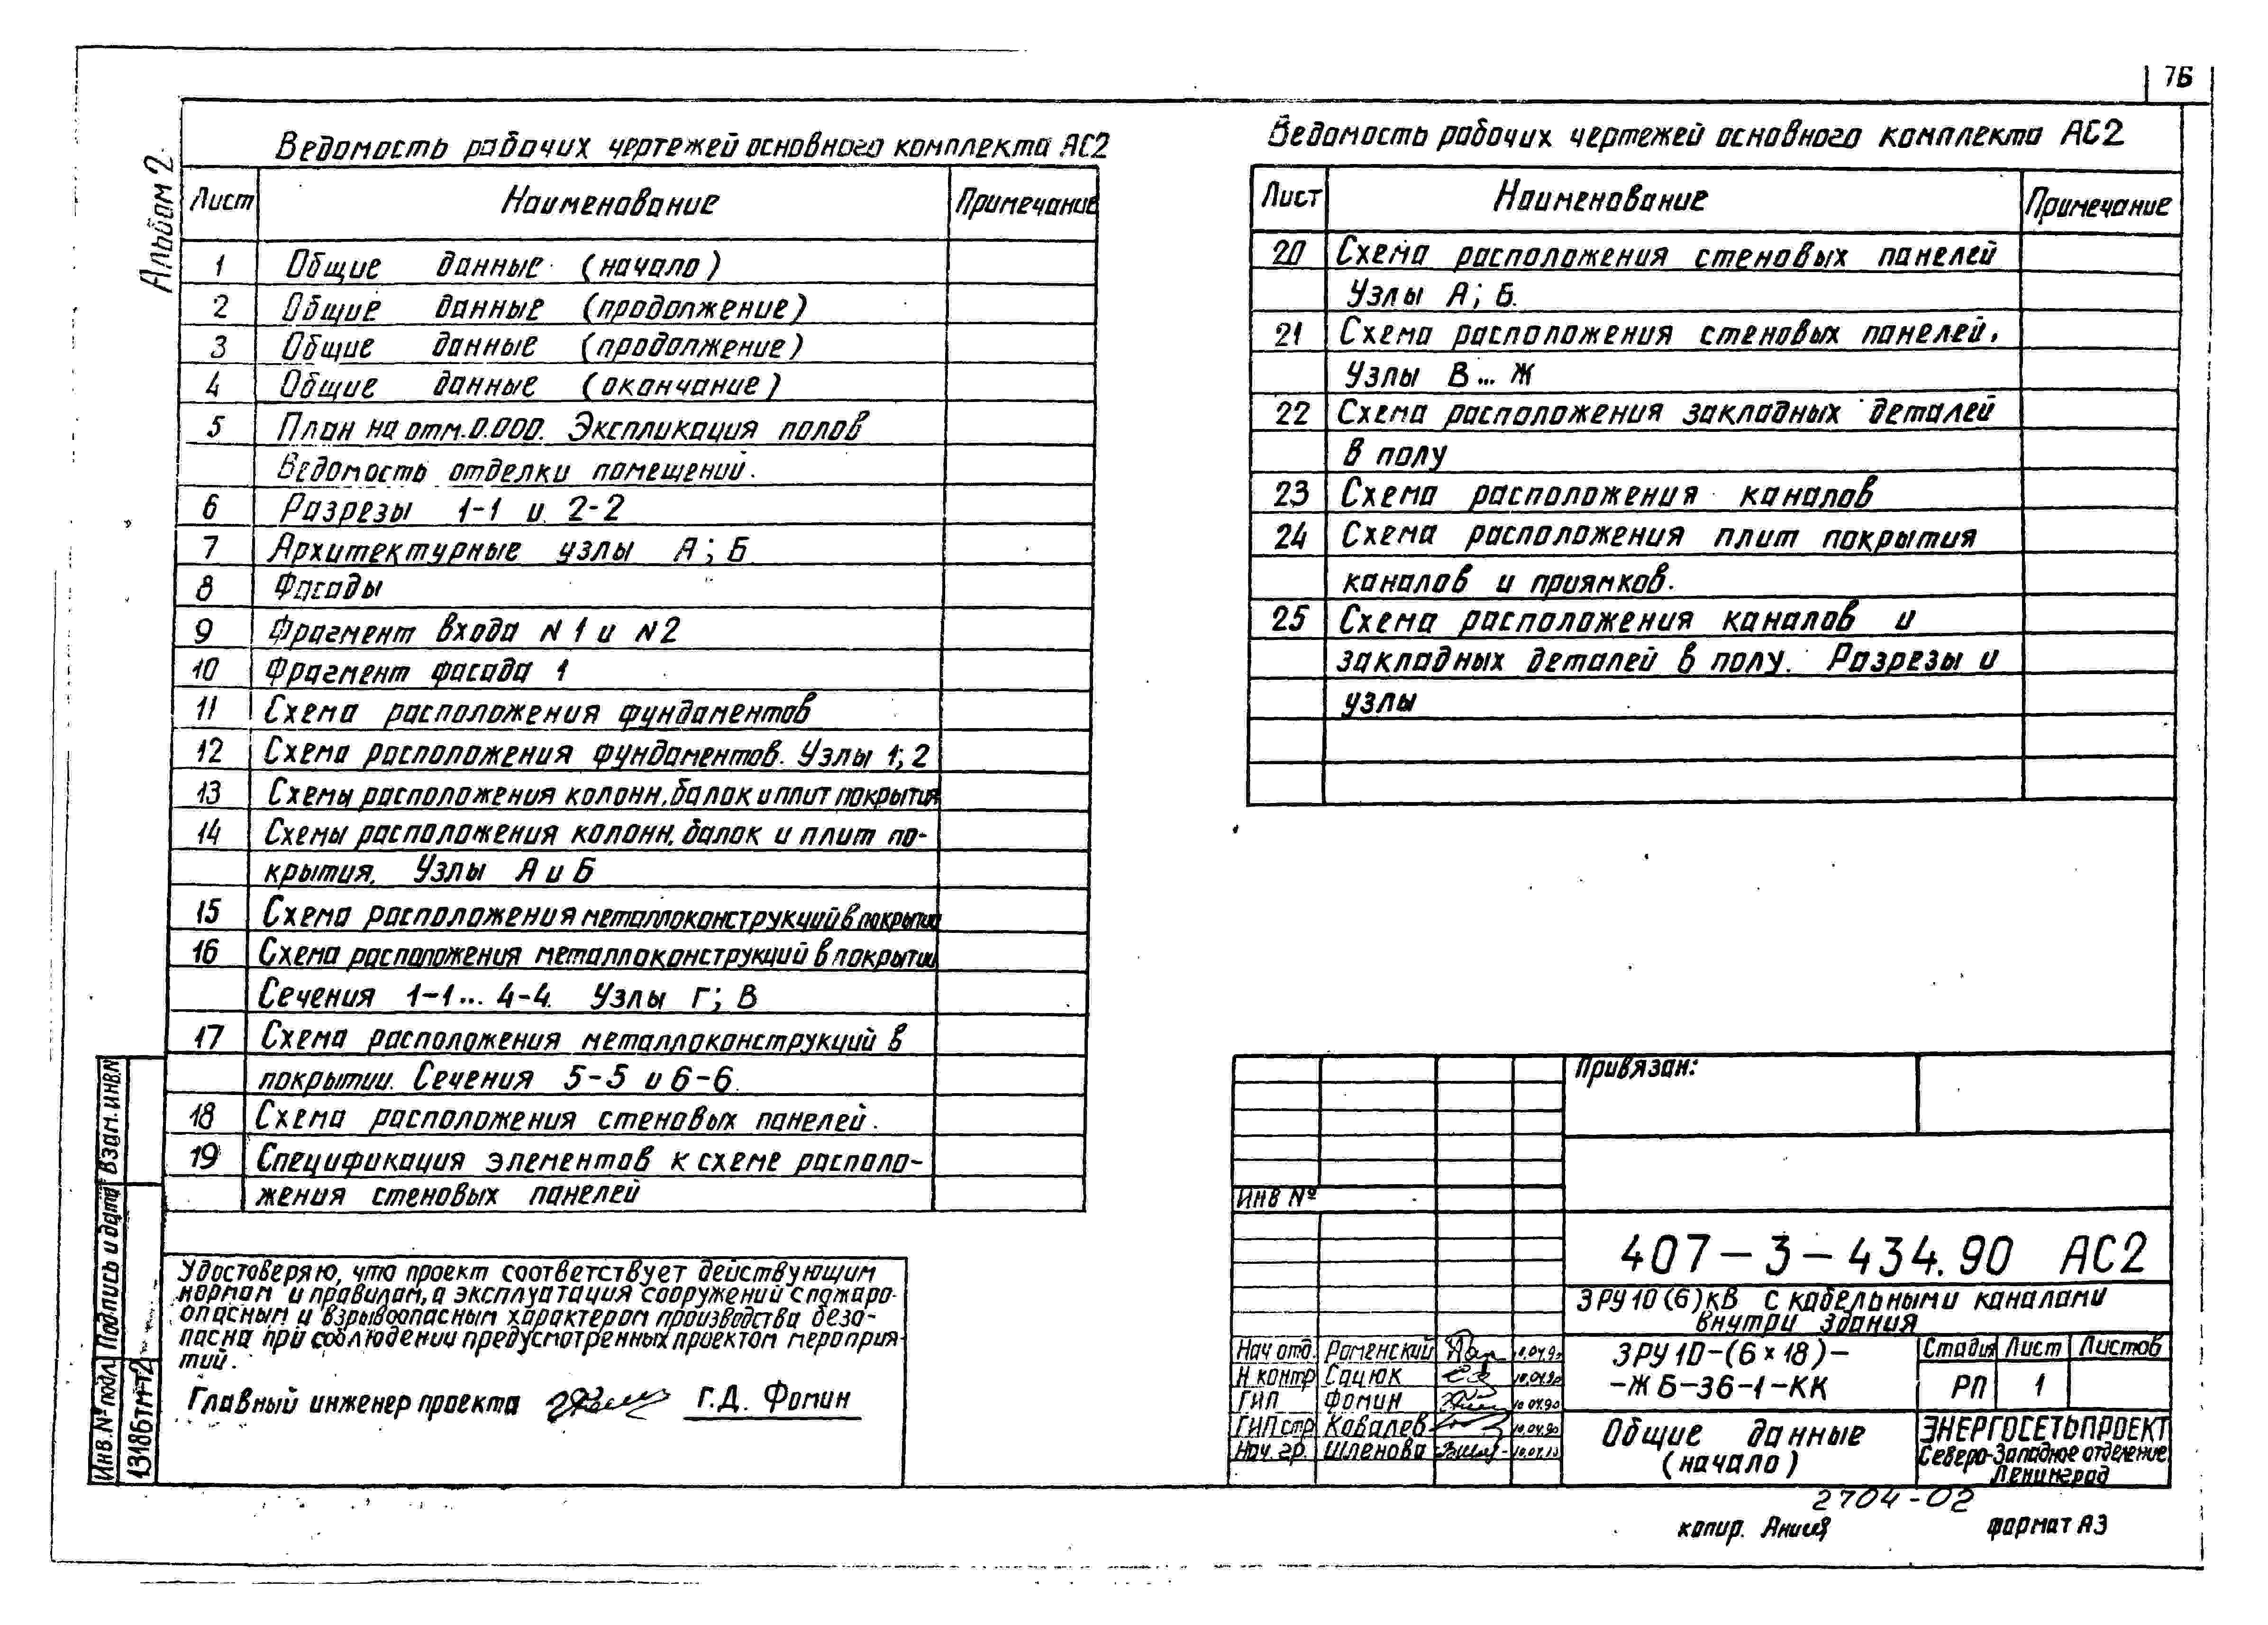 76
Альбом 2
Ведомость рабочих чертежей основного комплекта АС2
Лист Наименование Примечание
1 Общие данные (начало)
2 Общие данные (продолжение)
3 Общие данные (продолжение)
4 Общие данные (окончание)
5 План на отм. 0.000. Экспликация полов
Ведомость отделки помещений.
6 Разрезы 1-1 и 2-2
7 Архитектурные узлы А; Б
8 Фасады
9 Фрагмент входа N1 и N2
10 Фрагмент фасада 1
11 Схема расположения фундаментов
12 Схема расположения фундаментов. Узлы 1; 2
13 Схемы расположения колонн, балок и плит покрытия
14 Схемы расположения колонн, балок и плит по-
крытия. Узлы А и Б
15 Схема расположения металлоконструкций в покрытии
16 Схема расположения металлоконструкций в покрытии
Сечения 1-1... 4-4. Узлы Г; В
17 Схема расположения металлоконструкций в
покрытии. Сечения 5-5 и 6-6.
18 Схема расположения стеновых панелей.
19 Спецификация элементов к схеме располо-
жения стеновых панелей
Ведомость рабочих чертежей основного комплекта АС2
Лист Наименование Примечание
20 Схема расположения стеновых панелей
Узлы А; Б.
21 Схема расположения стеновых панелей.
Узлы В... Ж
22 Схема расположения закладных деталей
в полу
23 Схема расположения каналов
24 Схема расположения плит покрытия
каналов и приямков.
25 Схема расположения каналов и
закладных деталей в полу. Разрезы и
узлы
Удостоверяю, что проект соответствует действующим
нормам и правилам, а эксплуатация сооружений с пожаро-
опасным и взрывоопасным характером производства безо-
пасна при соблюдении предусмотренных проектом мероприя-
тий.
Главный инженер проекта Г.Д. Фомин
Взам. инв.N
Подпись и дата
Инв. N° подл.
13186тм-т2
Привязан:
Инв N°
407-3-434.90 АС2
ЗРУ 10 (6) кВ с кабельными каналами
внутри здания
Нач отд. Роменский 10.04.90
Н контр Сацюк 10.04.90
ГИП Фомин 10.04.90
ГИП стр Ковалев 10.04.90
Нач. гр. Шленова
ЗРУ 10-(6×18)-
-ЖБ-36-1-КК
Стадия Лист Листов
РП 1
Общие данные
(начало)
ЭНЕРГОСЕТЬПРОЕКТ
Северо-Западное отделение
Ленинград
2704-02
копир. формат А3